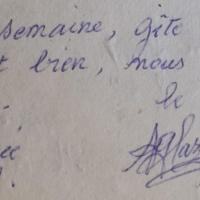 semaine, gîte
t bien, nous
le
ée